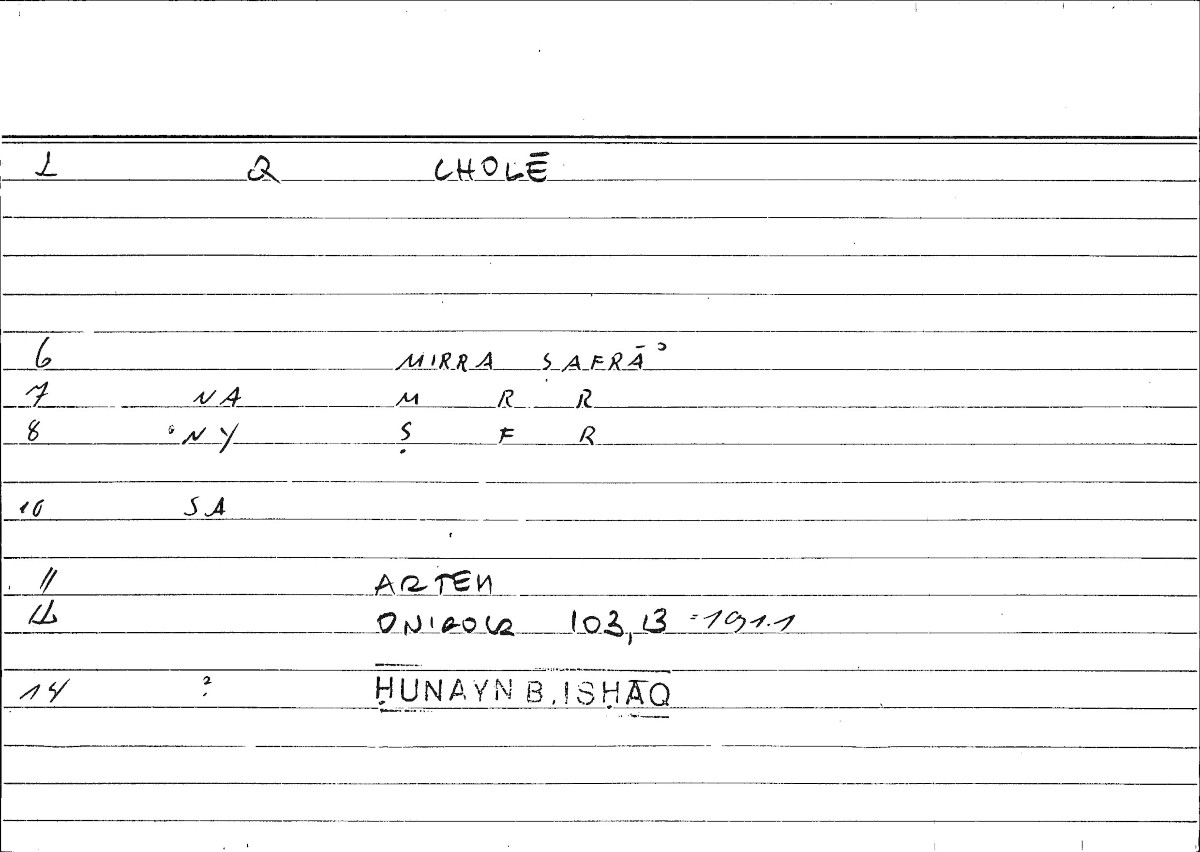 1 Q CHOLĒ
6 MIRRA ṢAFRĀʾ
7 NA M R R
8 NY Ṣ F R
10 SA
11 ARTEM
12 ONIROCR 103,13 = 191.1
14 ? ḤUNAYN B. ISḤĀQ